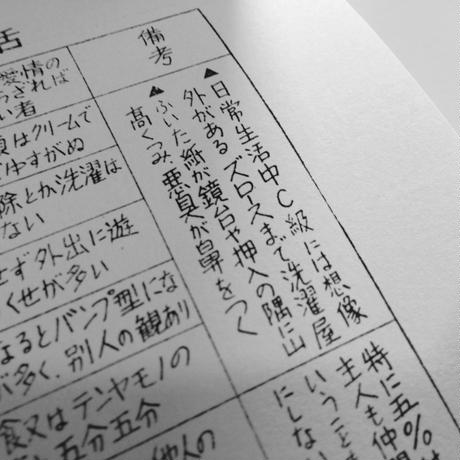 備考
▲日常生活中C級には想像
外がある ズロースまで洗濯屋
▲ふいた紙が鏡台や押入の隅に山
高くつみ、悪臭が鼻をつく
特に五%
主人も仲間
いうことを
にしない
活
愛情の
ざれば
い者
はクリームで
すがぬ
除とか洗濯は
ない
せず外出に遊
くせが多い
なるとバンプ型にな
が多く、別人の観あり
食又はテンヤモノの
五分五分
他人の